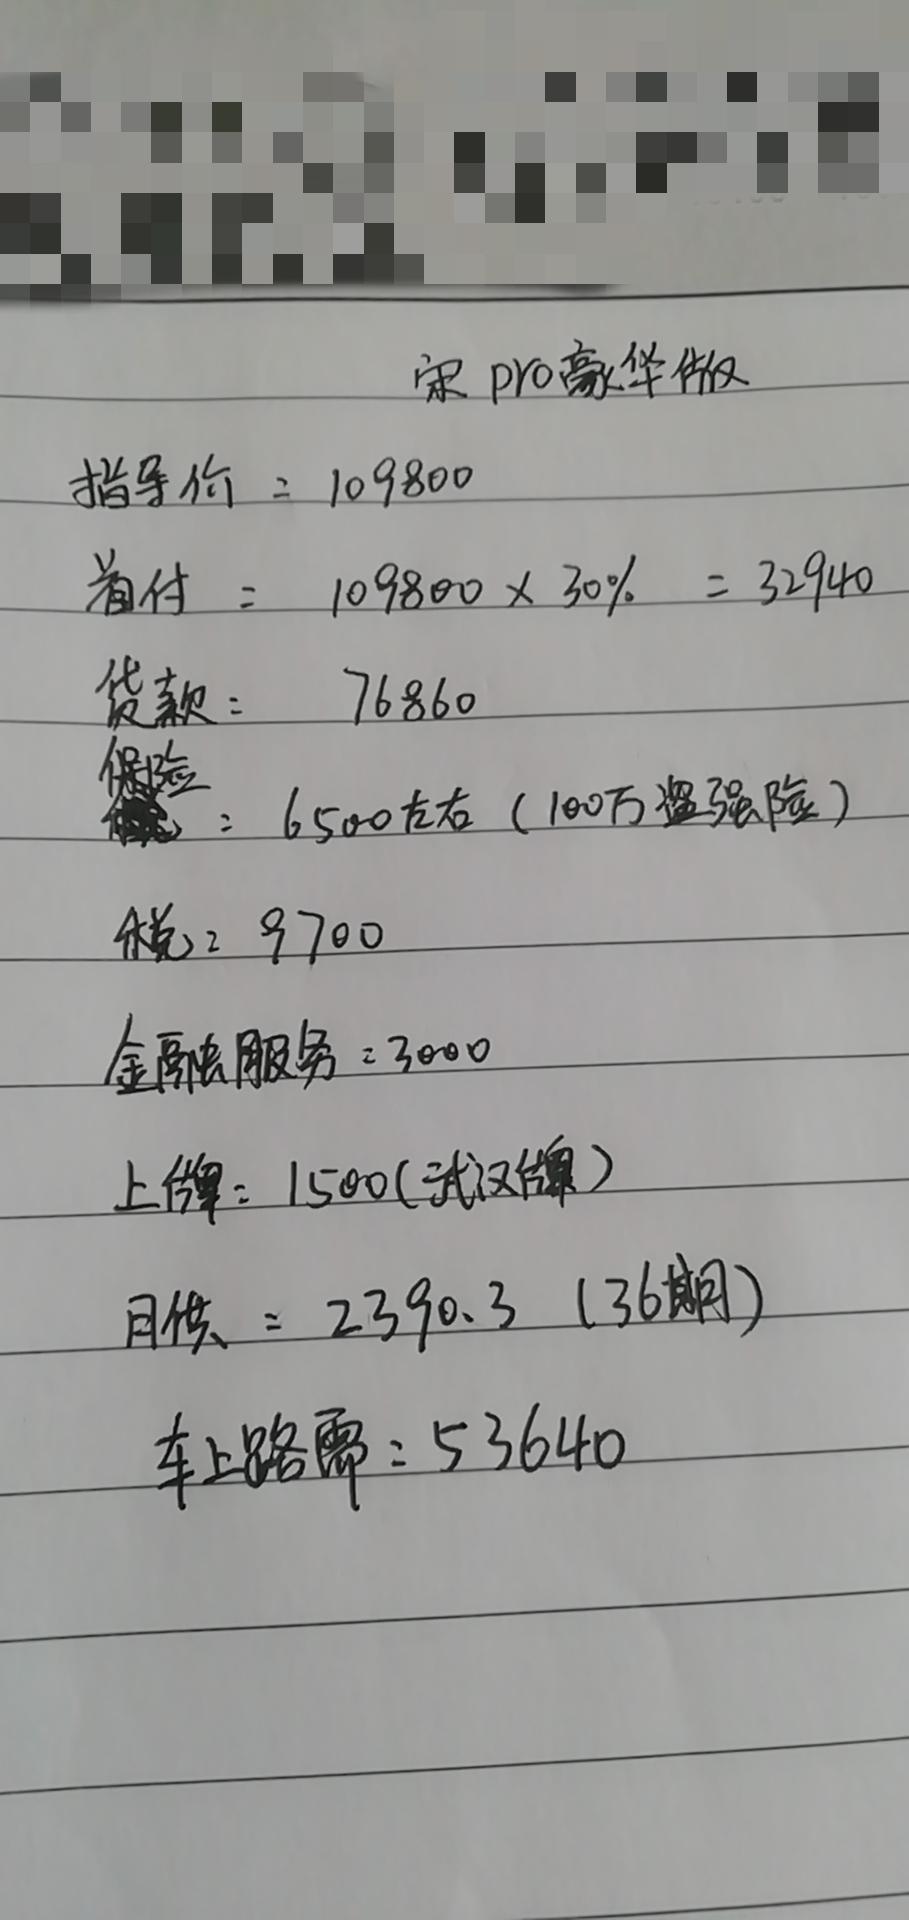 宋pro豪华版
指导价 = 109800
首付 = 109800 × 30% = 32940
贷款: 76860
保险
: 6500左右 (100万 强险)
税: 9700
金融服务: 3000
上牌: 1500(武汉牌)
月供 = 2390.3 (36期)
车上路需: 53640